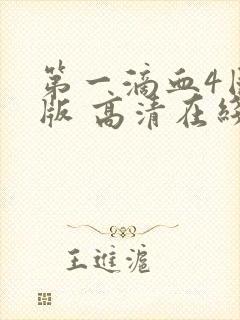 第一滴血4
版 高清在线
王进沪